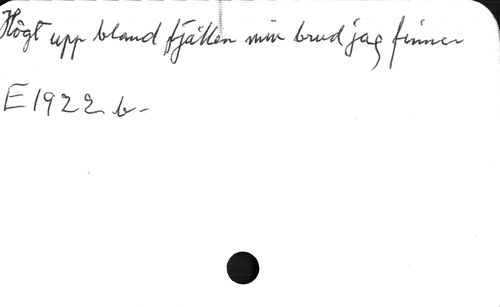 Högt upp bland fjällen min brud jag finner
E 1922 b-